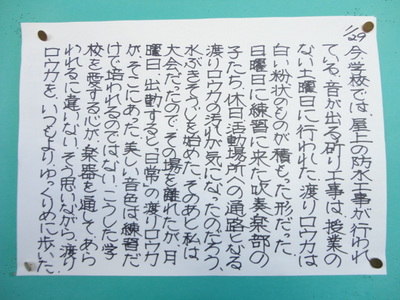 1/29 今、学校では、屋上の防水工事が行われ
ている。音が出る研り工事は、授業の
ない土曜日に行われた。渡りロウカは
白い粉状のものが積もった形だった。
日曜日に練習に来た吹奏楽部の
子たち、休日活動場所への通路となる
渡りロウカの汚れが気になったのだろう、
水ぶきそうじを始めた。そのあと私は、
大会だったので、その場を離れたが、月
曜日、出勤すると、日常の渡りロウカ
が、そこにあった。美しい音色は練習だ
けで培われるのではない。こうした学
校を愛する心が、楽器を通してあら
われるに違いない。そう思いながら、渡り
ロウカを、いつもよりゆっくりめに歩いた。